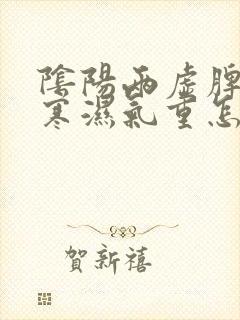 陰陽兩虛脾
寒濕氣重怎
賀新禧